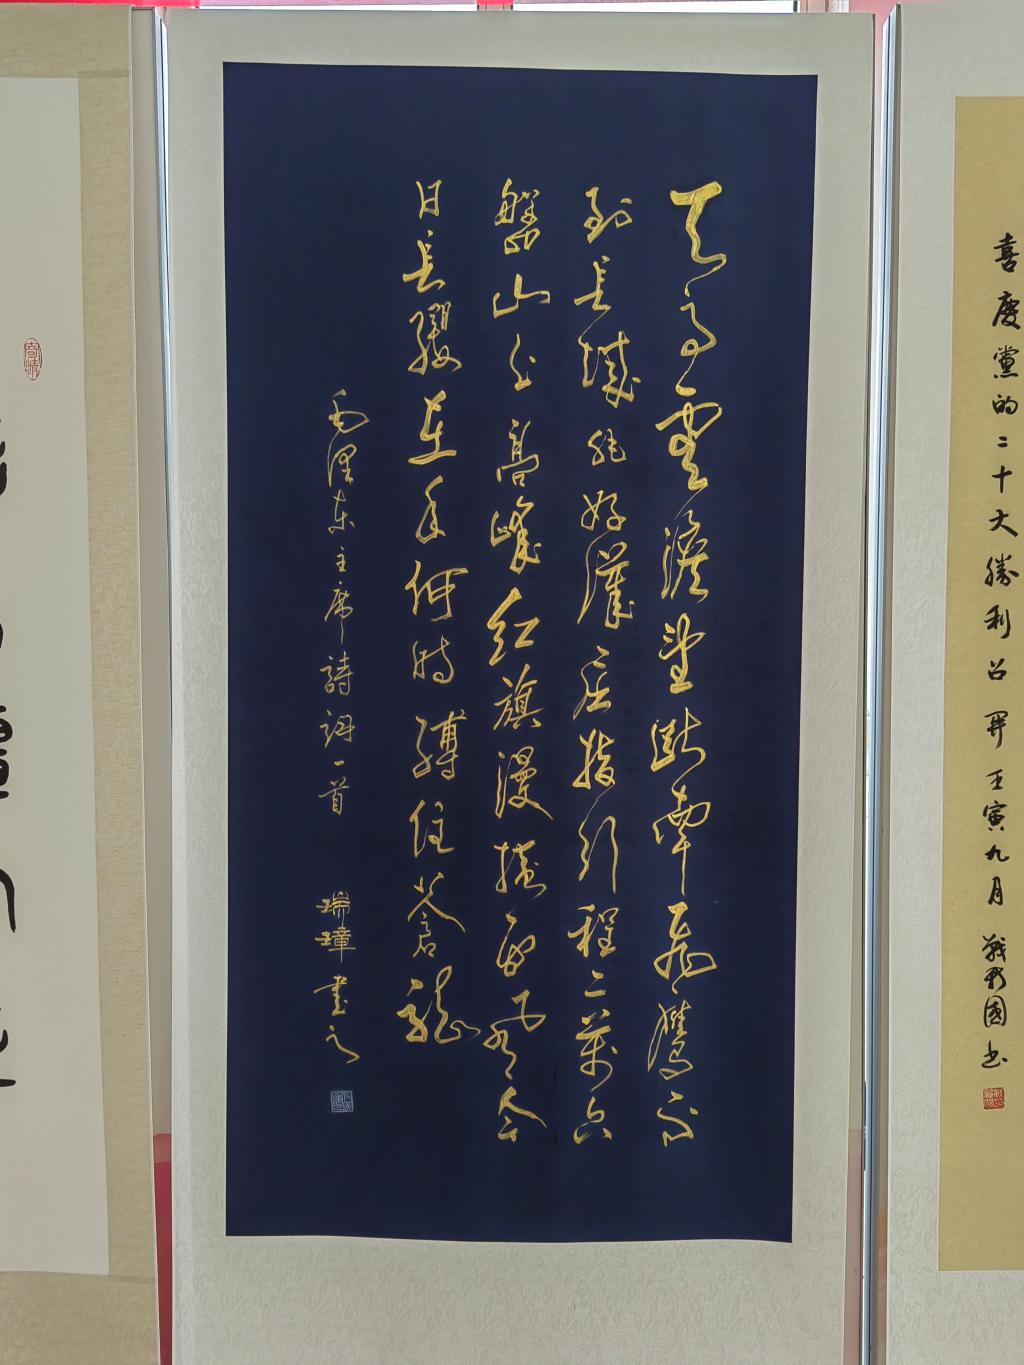 喜慶黨的二十大勝利召開 壬寅九月
天高雲淡望斷南飛雁不
到長城非好漢屈指行程二萬六
盤山上高峰紅旗漫捲西風今
日長纓在手何時縛住蒼龍
毛澤東主席詩詞一首 瑞璋書之